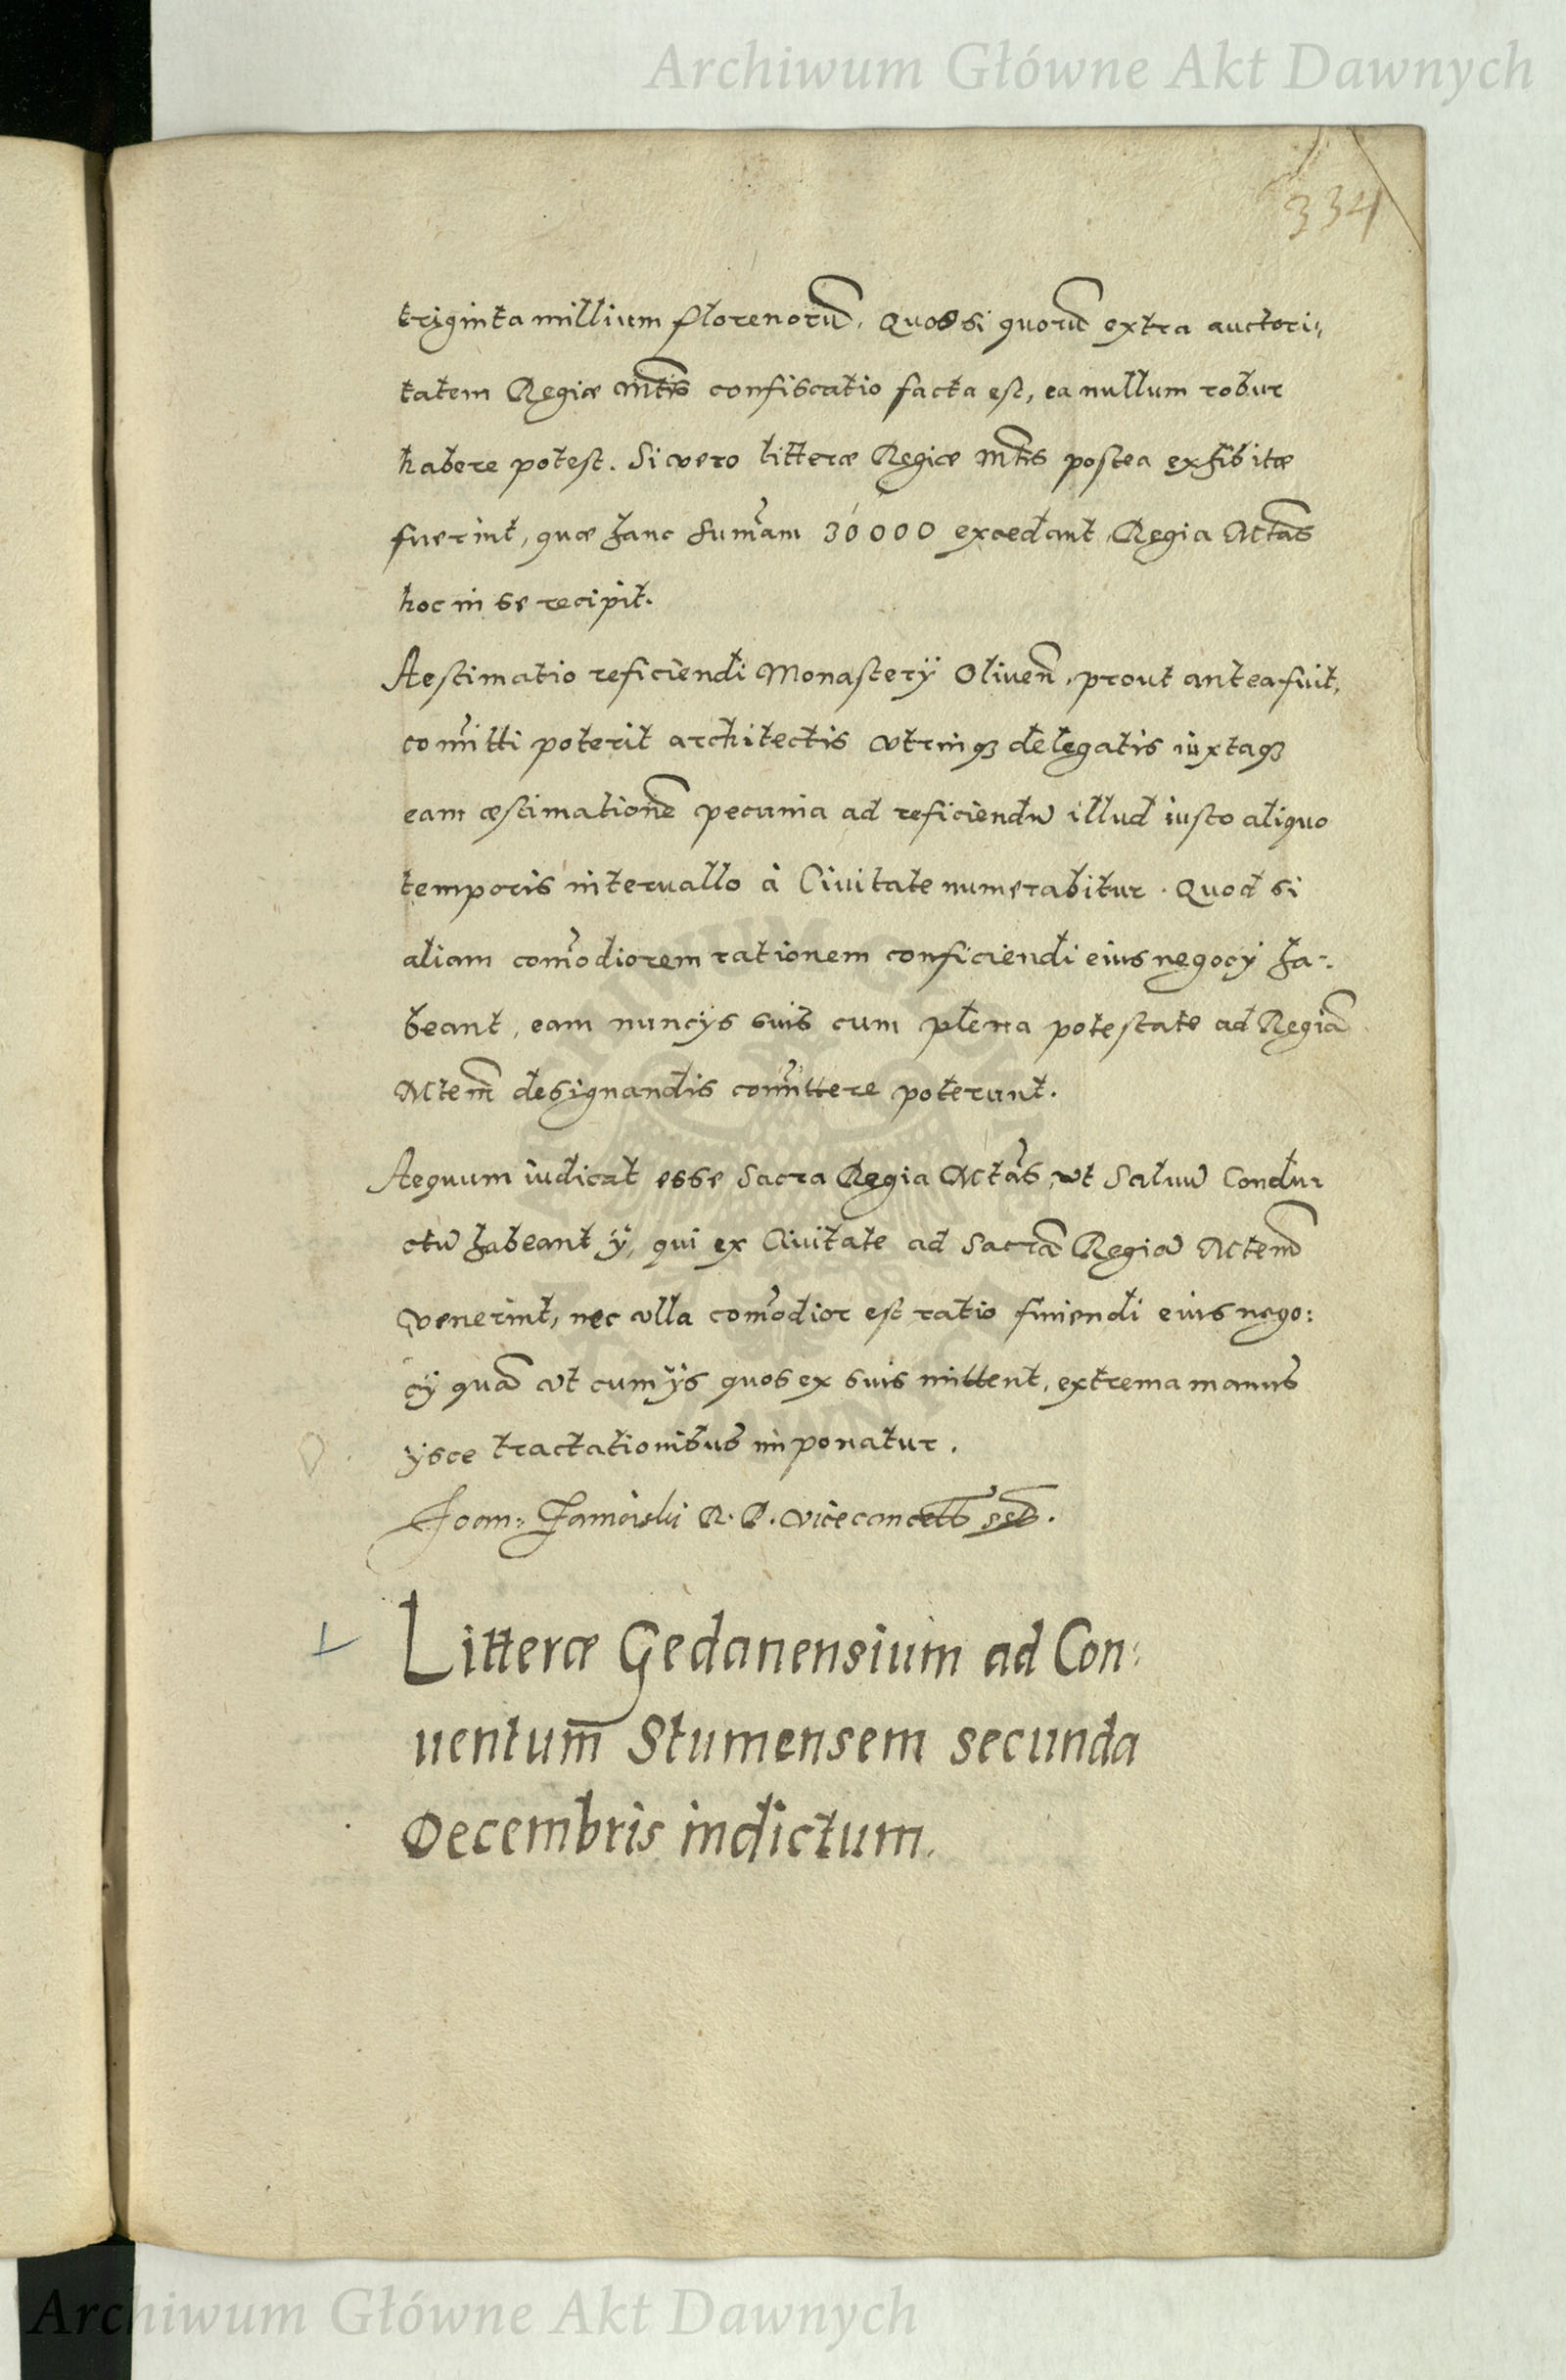 Archiwum Główne Akt Dawnych
334
triginta millium florenorũ. Quod si quorũ extra auctori„
tatem Regiæ Mtis confiscatio facta est, ea nullum robur
habere potest. Si vero litteræ Regiæ Mtis postea exhibitæ
fuerint, quæ hanc sum̃am 30000 excedant, Regia Mtas
hoc in se recipit.
Aestimatio reficiendi Monasterÿ Oliueñ. prout antea fuit,
com̃itti poterit architectis vtrinqꝫ delegatis iuxtaqꝫ
eam æstimationẽ pecunia ad reficiendũ illud iusto aliquo
temporis interuallo à Ciuitate numerabitur. Quod si
aliam com̃odiorem rationem conficiendi eius negocÿ ha-:
beant, eam nuncÿs suis cum plena potestate ad Regiã
Mtem̃ designandis com̃ittere poterunt.
Aequum iudicat esse Sacra Regia Mtas, vt Saluũ Condu-
ctũ habeant ÿ, qui ex Ciuitate ad Sacrã Regiã Mtem̃
venerint, nec vlla com̃odior est ratio finiendi eius nego:
cÿ quã vt cum ÿs quos ex suis mittent, extrema manus
ÿsce tractationibus imponatur.
Joan: Zamoiski R. P. Vicecancells sst.
Litteræ Gedanensium ad Con:
uentum̄ Stumensem secunda
Decembris indictum.
Archiwum Główne Akt Dawnych